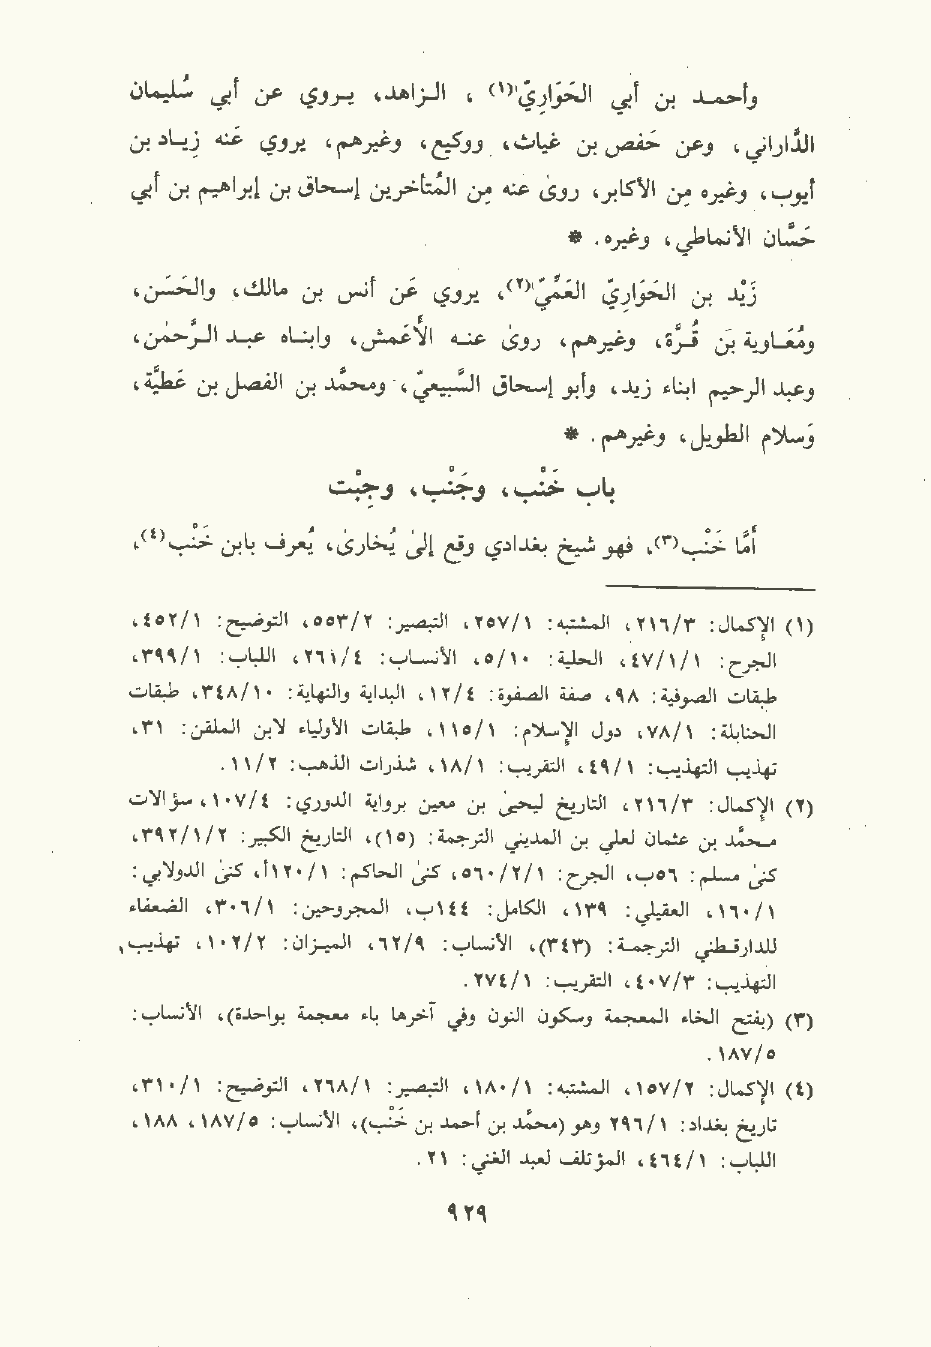 وأحمد بن أبي الحَوَاريّ(١)، الزاهد، يروي عن أبي سُليمان
الدَّاراني، وعن حَفص بن غياث، ووكيع، وغيرهم، يروي عَنه زِياد بن
أيوب، وغيره مِن الأكابر، روىٰ عنه مِن المُتأخرين إسحاق بن إبراهيم بن أبي
حَسَّان الأنماطي، وغيره. *
زَيْد بن الحَوَاريّ العَمِّيّ(٢)، يروي عَن أنس بن مالك، والحَسَن،
ومُعَاوية بنَ قُرَّة، وغيرهم، روىٰ عنه الأَعمش، وابناه عبد الرَّحمٰن،
وعبد الرحيم ابناء زيد، وأبو إسحاق السَّبيعيّ، ومحمَّد بن الفضل بن عَطيَّة،
وَسلام الطويل، وغيرهم. *
باب خَنْب، وجَنْب، وجِبْت
أمَّا خَنْب(٣)، فهو شيخ بغدادي وقع إلىٰ بُخارىٰ، يُعرف بابن خَنْب(٤)،
(١) الإكمال: ٢١٦/٣، المشتبه: ٢٥٧/١، التبصير: ٥٥٣/٢، التوضيح: ٤٥٢/١،
الجرح: ٤٧/١/١، الحلية: ٥/١٠، الأنساب: ٢٦١/٤، اللباب: ٣٩٩/١،
طبقات الصوفية: ٩٨، صفة الصفوة: ١٢/٤، البداية والنهاية: ٣٤٨/١٠، طبقات
الحنابلة: ٧٨/١، دول الإسلام: ١١٥/١، طبقات الأولياء لابن الملقن: ٣١،
تهذيب التهذيب: ٤٩/١، التقريب: ١٨/١، شذرات الذهب: ١١/٢.
(٢) الإكمال: ٢١٦/٣، التاريخ ليحيىٰ بن معين برواية الدوري: ١٠٧/٤، سؤالات
محمَّد بن عثمان لعلي بن المديني الترجمة: (١٥)، التاريخ الكبير: ٣٩٢/١/٢،
كنىٰ مسلم: ٥٦ب، الجرح: ٥٦٠/٢/١، كنىٰ الحاكم: ١٢٠/١أ، كنىٰ الدولابي:
١٦٠/١، العقيلي: ١٣٩، الكامل: ١٤٤ب، المجروحين: ٣٠٦/١، الضعفاء
للدارقطني الترجمة: (٣٤٣)، الأنساب: ٦٢/٩، الميزان: ١٠٢/٢، تهذيب
التهذيب: ٤٠٧/٣، التقريب: ٢٧٤/١.
(٣) (بفتح الخاء المعجمة وسكون النون وفي آخرها باء معجمة بواحدة)، الأنساب:
١٨٧/٥.
(٤) الإكمال: ١٥٧/٢، المشتبه: ١٨٠/١، التبصير: ٢٦٨/١، التوضيح: ٣١٠/١،
تاريخ بغداد: ٢٩٦/١ وهو (محمَّد بن أحمد بن خَنْب)، الأنساب: ١٨٧/٥، ١٨٨،
اللباب: ٤٦٤/١، المؤتلف لعبد الغني: ٢١.
٩٢٩